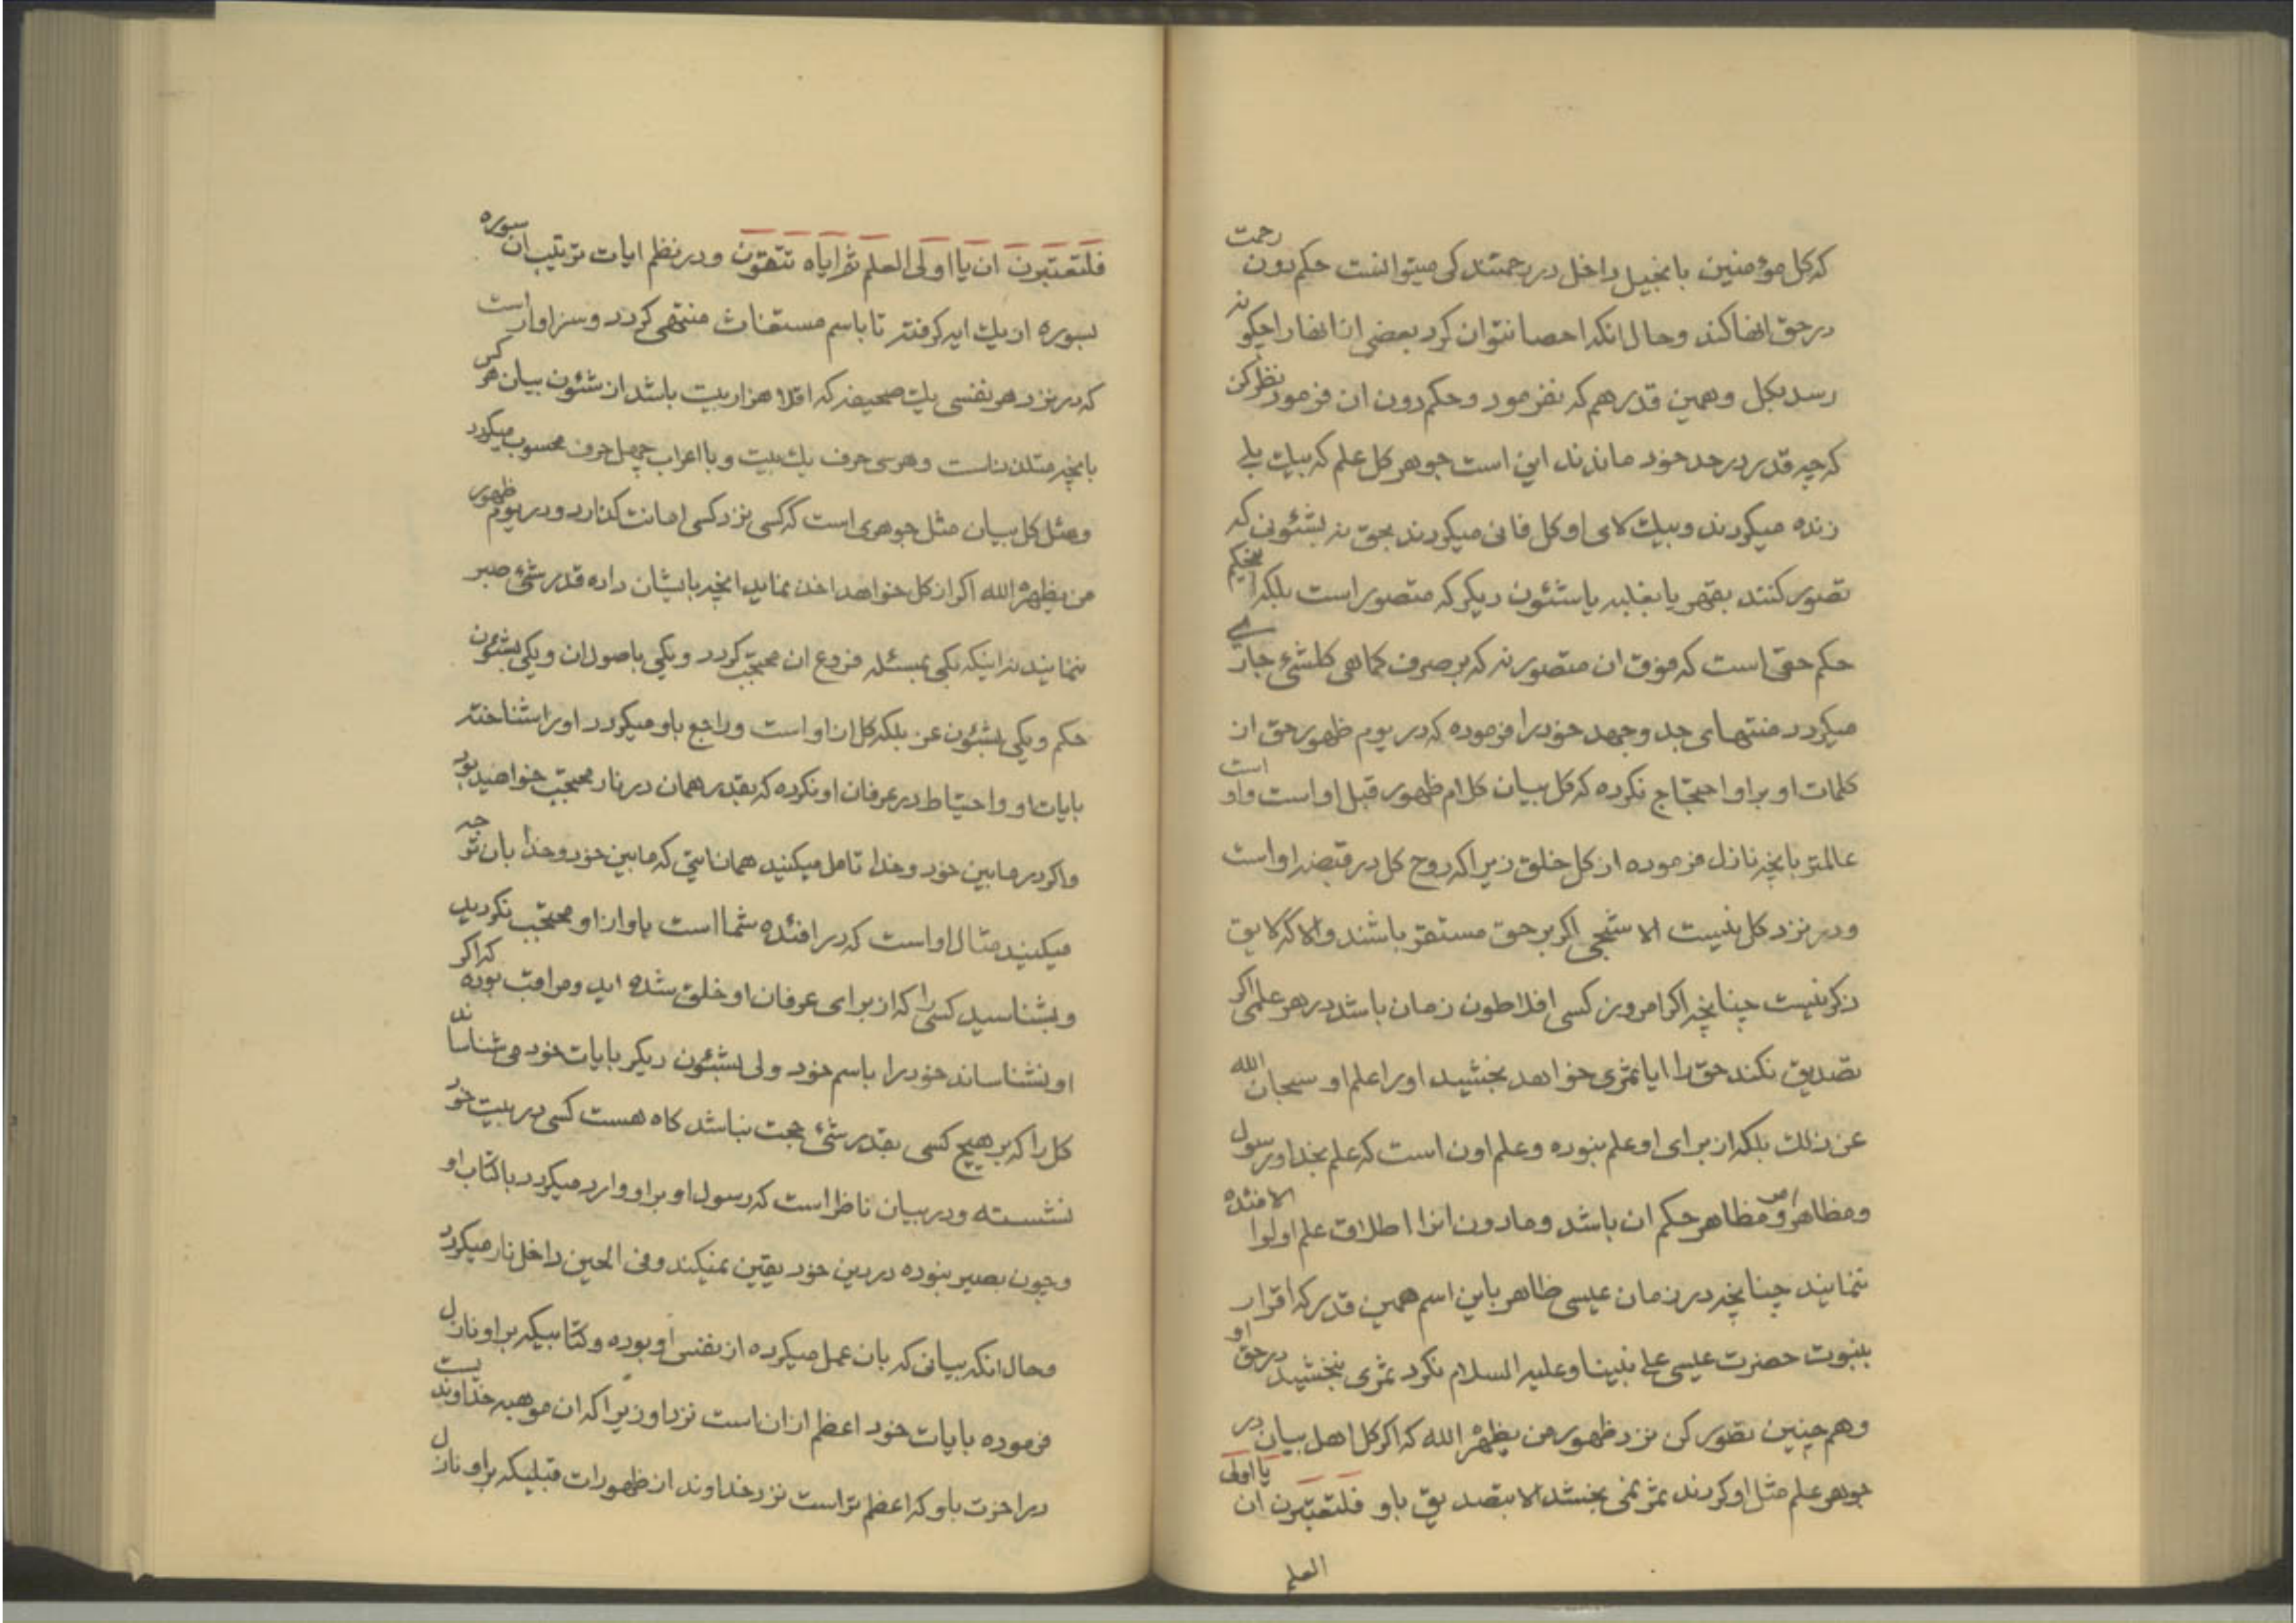 که کل مؤمنین بانجیل داخل در رحمتند کی میتوانست حکم دون رحمت
در حق انها کند و حال انکه احصا نتوان کرد بعضی از انها را چگونه
رسد بکل و همین قدر هم که نفرمود و حکم دون ان فرمود نظر کن
که چه قدر در حد خود ماندند این است جوهر کل علم که بیک بلی
زنده میگردند و بیک لای او کل فانی میگردند بحق نه بشئونی که
تصور کنند بقهر یا بغلبه یا شئون دیگر که متصور است بلکه بحکم
حکم حقی است که فوق ان متصور نه که بر صرف کماهی کلشیء جاری
میگردد منتهای جد و جهد خود را فرموده که در یوم ظهور حق از
کلمات او بر او احتجاج نکرده که کل بیان کلام ظهور قبل او است و او است
عالمتر بانچه نازل فرموده از کل خلق زیرا که روح کل در قبضه او است
و در نزد کل نیست الا شبحی اگر بر حق مستقر باشند و الا که لایق
ذکر نیست چنانچه اگر امروز کسی افلاطون زمان باشد در هر علمی اگر
تصدیق نکند حق را ایا ثمری خواهد بخشید او را علم او سبحان الله
عن ذلك بلکه از برای او علم نبوده و علم اون است که علم بخدا و رسول
و مظاهر امر و مظاهر حکم ان باشد و مادون انرا اطلاق علم اولوا الافئدة
ننمایند چنانچه در زمان عیسی ظاهر باین اسم همین قدر که اقرار
بنبوت حضرت عیسی علی نبینا و علیه السلام نکرد ثمری نبخشید در حق او
و هم چنین تصور کن نزد ظهور من یظهره الله که اگر کل اهل بیان در
جوهر علم مثل او گردند ثمر نمی بخشد الا بتصدیق باو فلتعتبرن ان یا اولی
العلم
فلتعتبرن ان یا اولی العلم ثم ایاه تتقون و در نظم ایات ترتیب ان سوره
بسوره از یك ایه گرفته تا باسم مستغاث منتهی گردد و سزاوار است
که در نزد هر نفسی یك صحیفه که اقلا هزار بیت باشد از شئون بیان هر کس
بانچه متلذذ است و هر سی حرف یك بیت و با اعراب چهل حرف محسوب میگردد
و مثل کل بیان مثل جوهری است که کسی نزد کسی امانت گذارد و در یوم ظهور
من یظهره الله اگر از کل خواهد اخذ نماید انچه بایشان داده قدر شیء صبر
ننمایند نه اینکه یکی بمسئله فروع ان محتجب گردد و یکی باصول ان و یکی بشئون
حکم و یکی بشئون عز بلکه کل از او است و راجع باو میگردد او را شناخته
بایات او و احتیاط در عرفان او نکرده که بقدر همان در نار محتجب خواهید بود
و اگر در مابین خود و خدا تامل میکنید همان ایتی که مابین خود و خدا بان توجه
میکنید مثال او است که در افئده شما است باو از او محتجب نگردید
و بشناسید کسی را که از برای عرفان او خلق شده اید و مراقب بوده که اگر
او نشناساند خود را باسم خود ولی بشئون دیگر بایات خود می شناساند
کل را که بر هیچ کسی بقدر شیء حجت نباشد گاه هست کسی در بیت خود
نشسته و در بیان ناظر است که رسول او بر او وارد میگردد با کتاب او
و چون بصیر نبوده در دین خود یقین نمیکند و فی الحین داخل نار میگردد
و حال انکه بیانی که بان عمل میکرده از نفس او بوده و کتابیکه بر او نازل
فرموده بایات خود اعظم از ان است نزد او زیرا که ان موهبه خداوندیست
در اخرت باو که اعظم تر است نزد خداوند از ظهورات قبلیکه بر او نازل